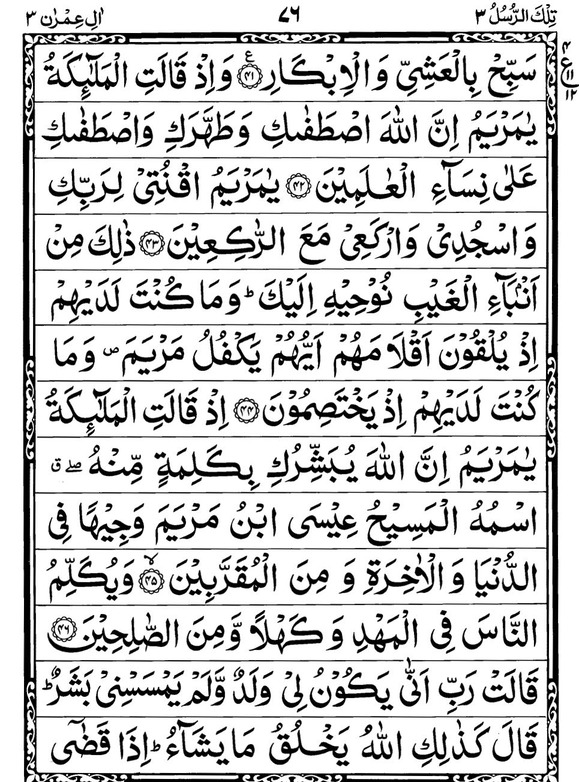 تِلْكَ الرُّسُلُ ٣ ٧٦ اٰلِ عِمْرٰن ٣
سَبِّحْ بِالْعَشِیِّ وَ الْاِبْكَارِ ﴿٤١﴾ ع وَ اِذْ قَالَتِ الْمَلٰٓىِٕكَةُ
٤ ع ١١ ١٢
یٰمَرْیَمُ اِنَّ اللّٰهَ اصْطَفٰىكِ وَ طَهَّرَكِ وَ اصْطَفٰىكِ
عَلٰى نِسَآءِ الْعٰلَمِیْنَ ﴿٤٢﴾ یٰمَرْیَمُ اقْنُتِیْ لِرَبِّكِ
وَ اسْجُدِیْ وَ ارْكَعِیْ مَعَ الرّٰكِعِیْنَ ﴿٤٣﴾ ذٰلِكَ مِنْ
اَنْۢبَآءِ الْغَیْبِ نُوْحِیْهِ اِلَیْكَ ؕ وَ مَا كُنْتَ لَدَیْهِمْ
اِذْ یُلْقُوْنَ اَقْلَامَهُمْ اَیُّهُمْ یَكْفُلُ مَرْیَمَ ۪ وَ مَا
كُنْتَ لَدَیْهِمْ اِذْ یَخْتَصِمُوْنَ ﴿٤٤﴾ اِذْ قَالَتِ الْمَلٰٓىِٕكَةُ
یٰمَرْیَمُ اِنَّ اللّٰهَ یُبَشِّرُكِ بِكَلِمَةٍ مِّنْهُ ۖۗ
اسْمُهُ الْمَسِیْحُ عِیْسَى ابْنُ مَرْیَمَ وَجِیْهًا فِی
الدُّنْیَا وَ الْاٰخِرَةِ وَ مِنَ الْمُقَرَّبِیْنَ ﴿٤٥﴾ۙ وَ یُكَلِّمُ
النَّاسَ فِی الْمَهْدِ وَ كَهْلًا وَّ مِنَ الصّٰلِحِیْنَ ﴿٤٦﴾
قَالَتْ رَبِّ اَنّٰى یَكُوْنُ لِیْ وَلَدٌ وَّ لَمْ یَمْسَسْنِیْ بَشَرٌ ؕ
قَالَ كَذٰلِكِ اللّٰهُ یَخْلُقُ مَا یَشَآءُ ؕ اِذَا قَضٰۤى